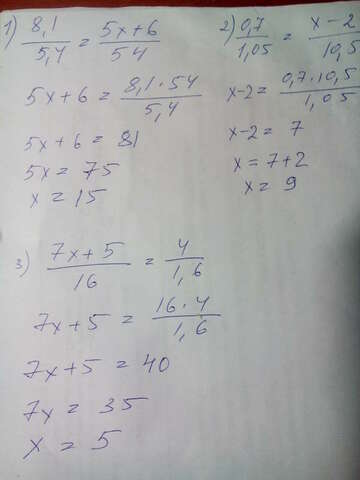 1) 8,1/5,4 = 5x+6/54
5x+6 = 8,1·54/5,4
5x+6 = 81
5x = 75
x = 15
2) 0,7/1,05 = x-2/10,5
x-2 = 0,7·10,5/1,05
x-2 = 7
x = 7+2
x = 9
3) 7x+5/16 = 4/1,6
7x+5 = 16·4/1,6
7x+5 = 40
7x = 35
x = 5